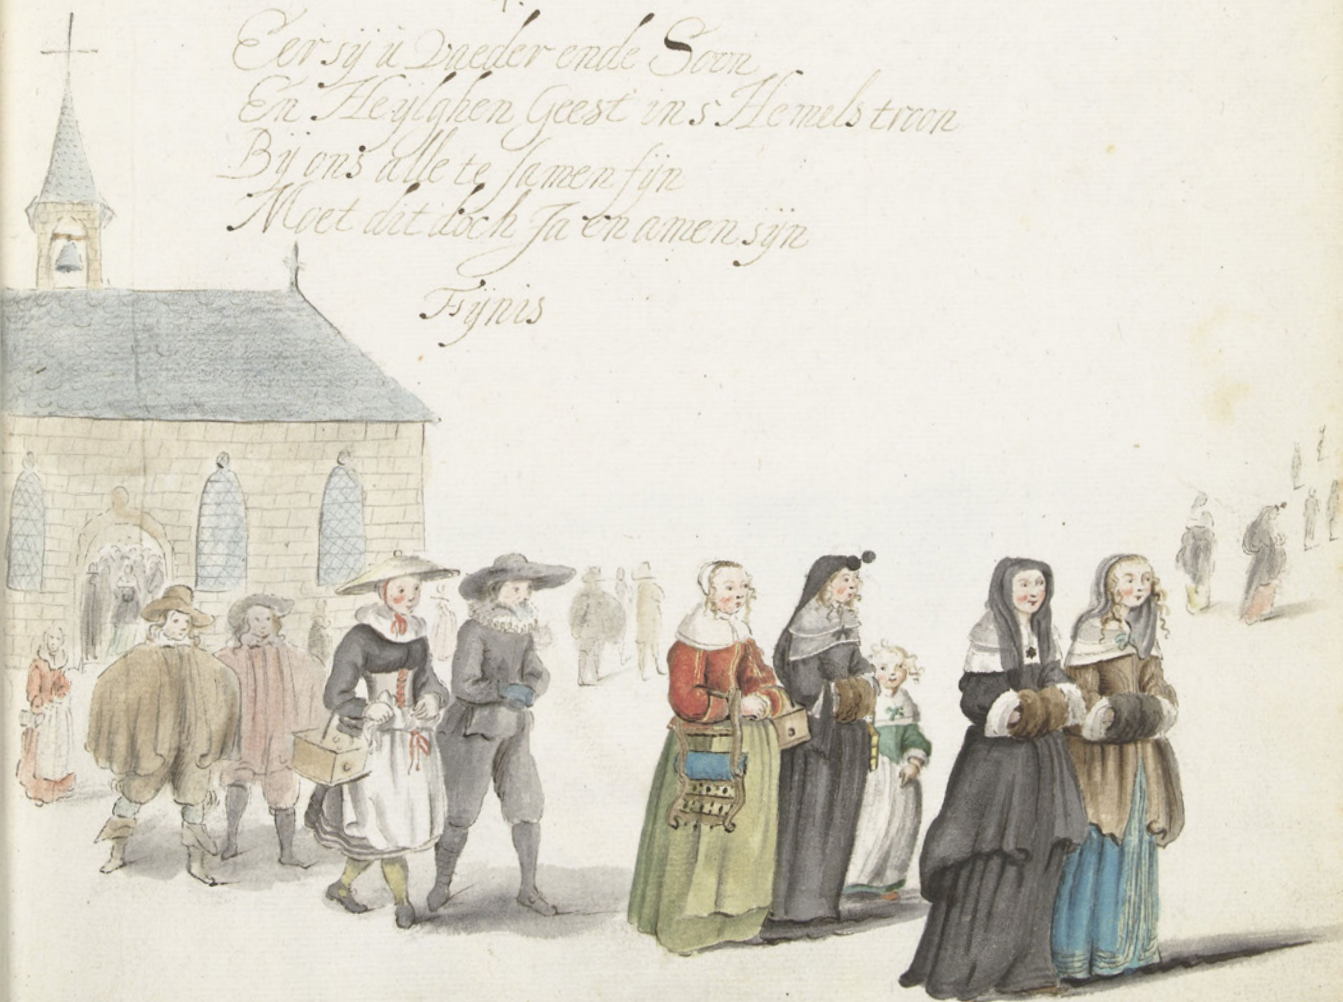 Eer sÿ ú Vaeder ende Soon
En Heÿlghen Geest in s Hemels troon
Bÿ ons alle te samen sÿn
Moet dit doch Ja en amen sÿn
Fÿnis